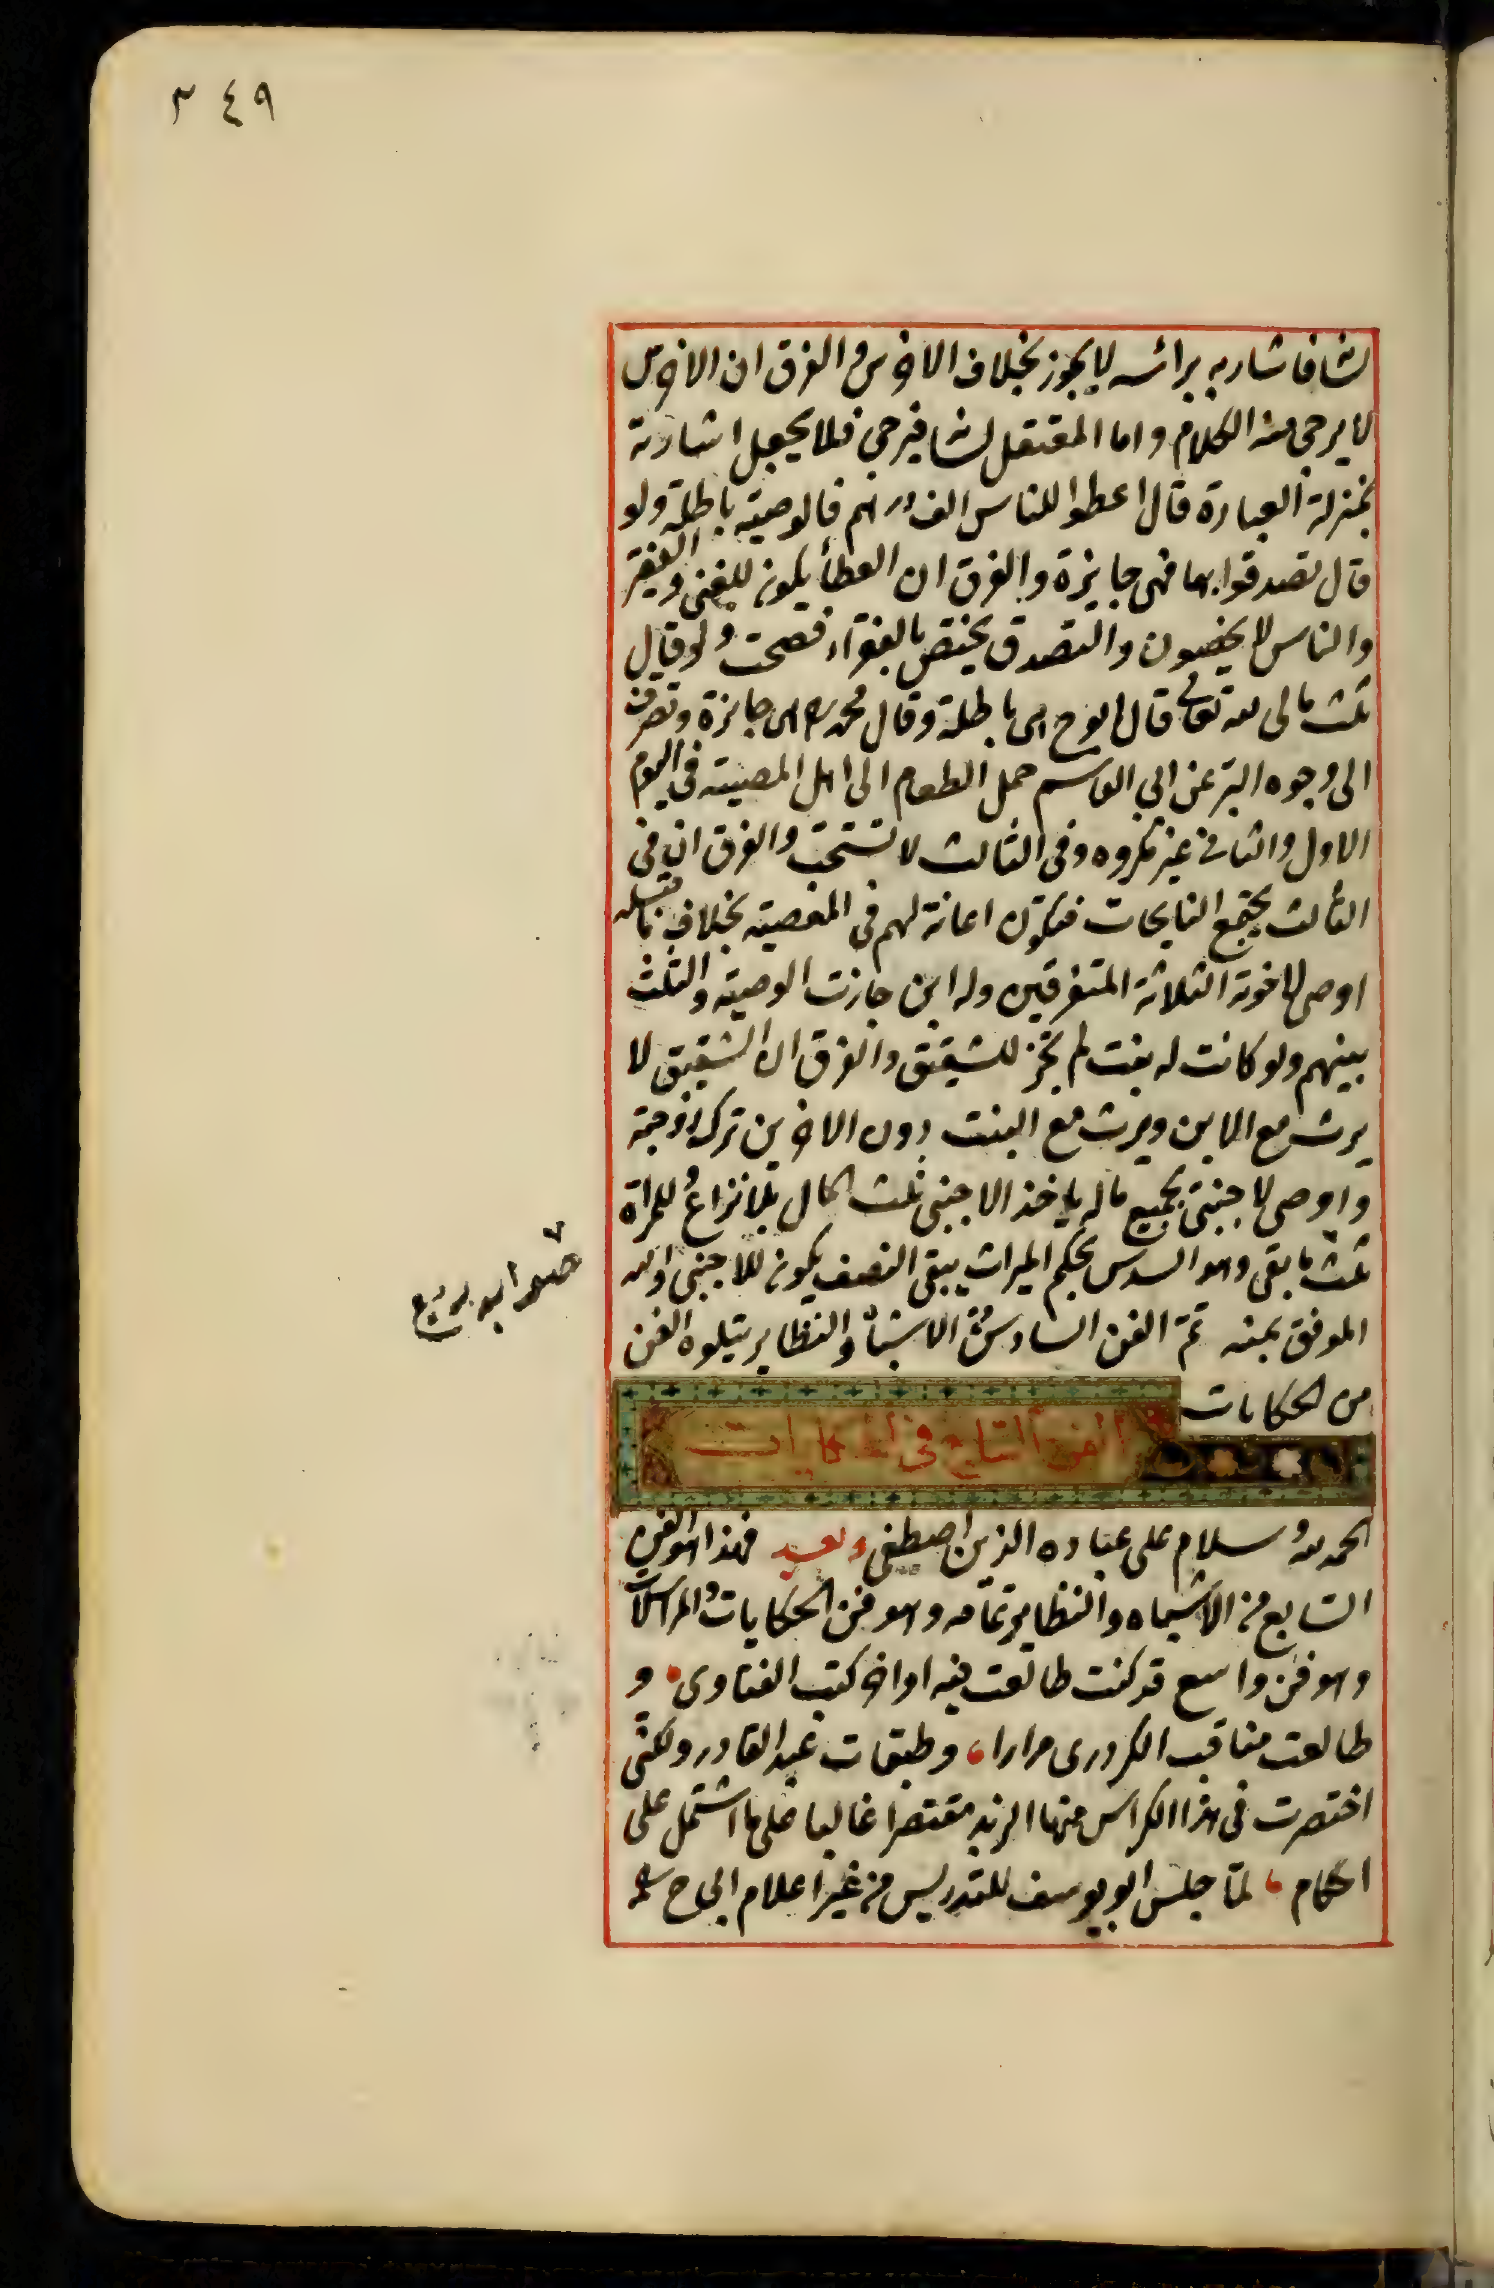 ٣٤٩
لسانا فاشار به براسه لا يجوز بخلاف الاخرس والفرق ان الاخرس
لا يرجى منه الكلام واما المعتقل لسانه فيرجى فلا يجعل اشارته
بمنزلة العبارة قال اعطوا للناس الف درهم فالوصية باطلة ولو
قال تصدقوا بها فهى جايزة والفرق ان العطأ يكون للغنى والفقير
والناس لا يحصون والتصدق يختص بالفقرآء فصحت ولو قال
ثلث مالى لله تعالى قال ابو ح هى باطلة وقال محمد رح هى جايزة وتصرف
الى وجوه البر عن ابي القاسم حمل الطعام الى اهل المصيبة فى اليوم
الاول والثانى غير مكروه وفى الثالث لا تستحب والفرق ان فى
الثالث يجتمع النايحات فيكون اعانة لهم فى المعصية بخلاف ما قبله
اوصى لاخوته الثلاثة المتفرقين وله ابن جازت الوصية والثلث
بينهم ولو كانت له بنت لم تجز للشقيق والفرق ان الشقيق لا
يرث مع الابن ويرث مع البنت دون الاخرين ترك زوجة
واوصى لاجنبى بجميع ماله ياخذ الاجنبى ثلث المال بلا نزاع وللمرأة
ثلث ما بقى وهو السدس بحكم الميراث يبقى النصف يكون للاجنبى والله
الموفق بمنه تم الفن السادس من الاشباه والنظاير يتلوه الفن
من الحكايات
الفن السابع فى الحكايات
الحمد لله وسلام على عباده الذين اصطفى وبعد فهذا هو الفن
السابع من الاشباه والنظاير تمامه وهو فن الحكايات والمراسلات
وهو فن واسع قد كنت طالعت فيه اواخر كتب الفتاوى و
طالعت مناقب الكردرى مرارا وطبقات عبد القادر ولكنى
اختصرت فى هذا الكراس منها الزبد مقتصرا غالبا على ما اشتمل على
احكام لما جلس ابو يوسف للتدريس من غير اعلام ابى ح